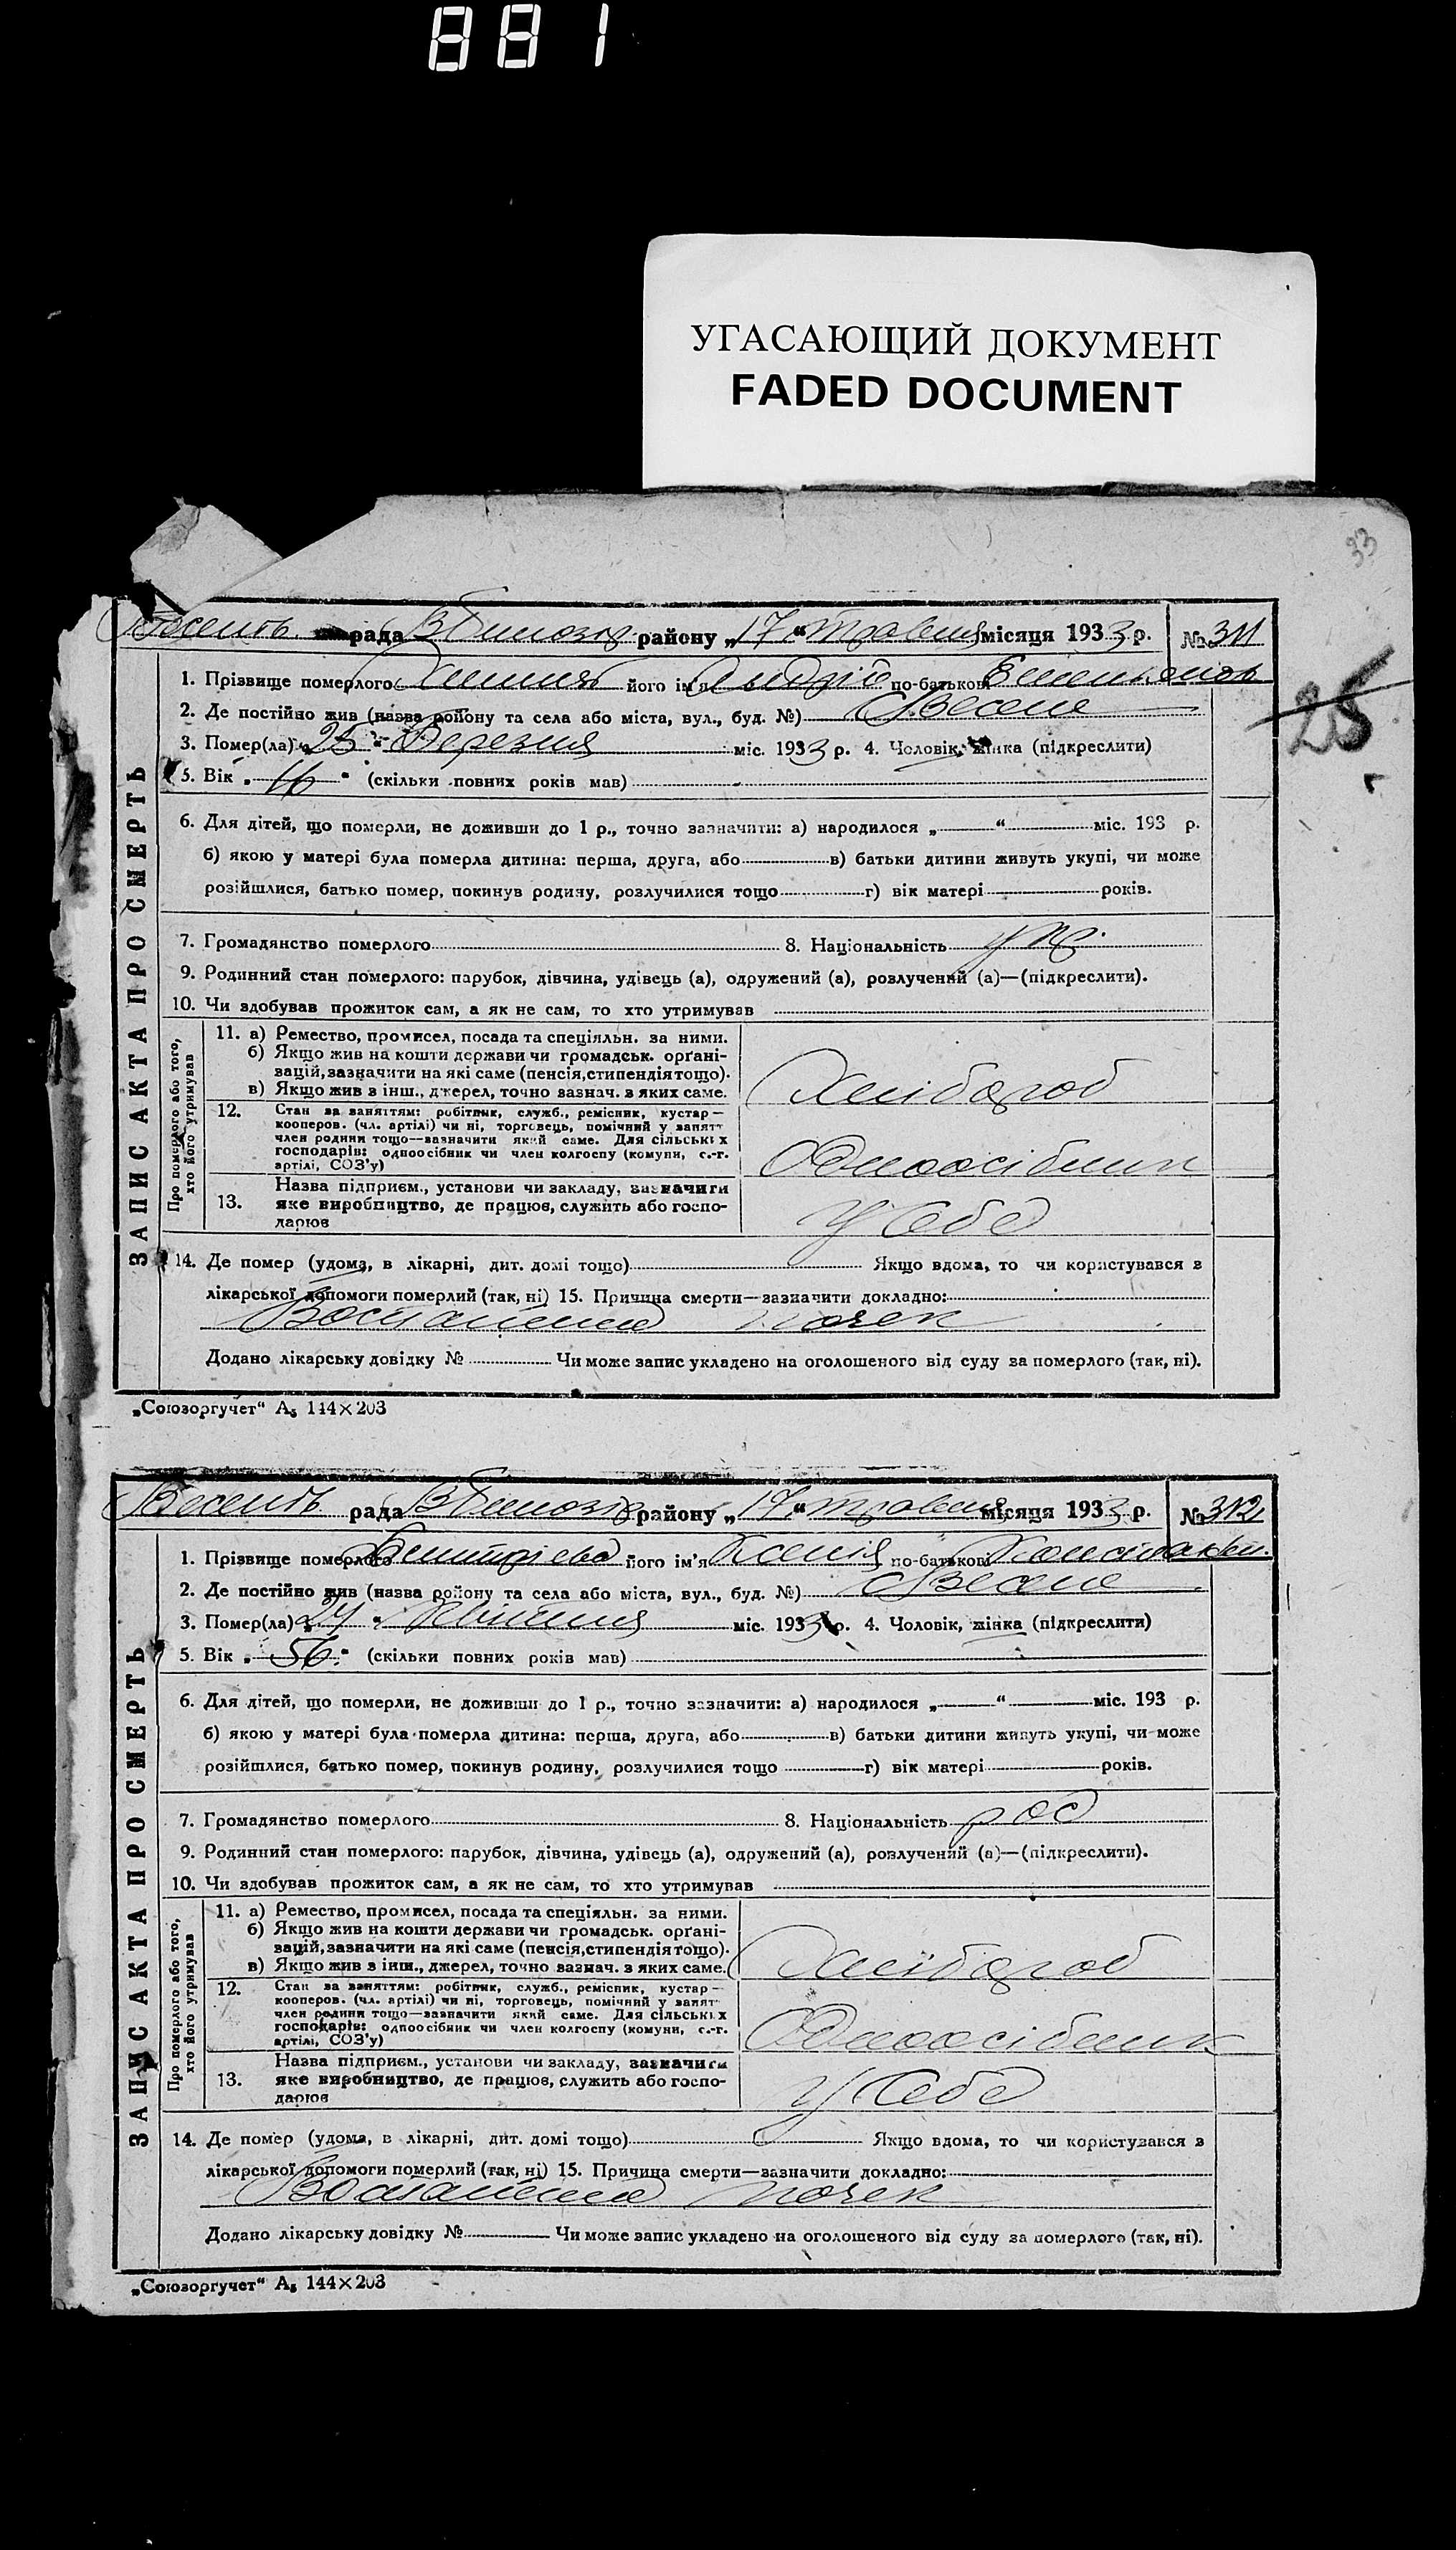 881
УГАСАЮЩИЙ ДОКУМЕНТ
FADED DOCUMENT
33
рада району „17“ травня місяця 1933 р. № 311
1. Прізвище померлого його ім'я Андрій по-батькові
25
2. Де постійно жив (назва району та села або міста, вул., буд. №) с Веселе
3. Помер(ла) „25“ Березня міс. 1933 р. 4. Чоловік, жінка (підкреслити)
5. Вік „16“ (скільки повних років мав)
6. Для дітей, що померли, не доживши до 1 р., точно зазначити: а) народилося „ “ міс. 193 р.
б) якою у матері була померла дитина: перша, друга, або в) батьки дитини живуть укупі, чи може
розійшлися, батько помер, покинув родину, розлучилися тощо г) вік матері років.
7. Громадянство померлого 8. Національність укр.
9. Родинний стан померлого: парубок, дівчина, удівець (а), одружений (а), розлучений (а)—(підкреслити).
10. Чи здобував прожиток сам, а як не сам, то хто утримував
ЗАПИС АКТА ПРО СМЕРТЬ
Про померлого або того, хто його утримував
11. а) Ремество, промисел, посада та спеціяльн. за ними.
б) Якщо жив на кошти держави чи громадськ. орґані-
зацій, зазначити на які саме (пенсія, стипендія тощо).
в) Якщо жив з інш., джерел, точно зазнач. з яких саме.
Хлібороб
12. Стан за заняттям: робітник, служб., ремісник, кустар—
кооперов. (чл. артілі) чи ні, торговець, помічний у занятт
член родини тощо—зазначити який саме. Для сільських
господарів: одноосібник чи член колгоспу (комуни, с.-г.
артілі, СОЗ'у)
Одноосібник
13. Назва підприєм., установи чи закладу, зазначити
яке виробництво, де працює, служить або госпо-
дарює
У себе
14. Де помер (удома, в лікарні, дит. домі тощо) Якщо вдома, то чи користувався з
лікарської допомоги померлий (так, ні) 15. Причина смерти—зазначити докладно:
Воспаление почек
Додано лікарську довідку № Чи може запис укладено на оголошеного від суду за померлого (так, ні).
„Союзоргучет“ А₅ 144×203
Веселть рада району „17“ травня місяця 1933 р. № 312
1. Прізвище померлого його ім'я по-батькові
2. Де постійно жив (назва району та села або міста, вул., буд. №) с Веселе
3. Помер(ла) „24“ Квітня міс. 1933 р. 4. Чоловік, жінка (підкреслити)
5. Вік „56“ (скільки повних років мав)
6. Для дітей, що померли, не доживши до 1 р., точно зазначити: а) народилося „ “ міс. 193 р.
б) якою у матері була померла дитина: перша, друга, або в) батьки дитини живуть укупі, чи може
розійшлися, батько помер, покинув родину, розлучилися тощо г) вік матері років.
7. Громадянство померлого 8. Національність рос
9. Родинний стан померлого: парубок, дівчина, удівець (а), одружений (а), розлучений (а)—(підкреслити).
10. Чи здобував прожиток сам, а як не сам, то хто утримував
ЗАПИС АКТА ПРО СМЕРТЬ
Про померлого або того, хто його утримував
11. а) Ремество, промисел, посада та спеціяльн. за ними.
б) Якщо жив на кошти держави чи громадськ. орґані-
зацій, зазначити на які саме (пенсія, стипендія тощо).
в) Якщо жив з інш., джерел, точно зазнач. з яких саме.
Хлібороб
12. Стан за заняттям: робітник, служб., ремісник, кустар—
кооперов. (чл. артілі) чи ні, торговець, помічний у занятт
член родини тощо—зазначити який саме. Для сільських
господарів: одноосібник чи член колгоспу (комуни, с.-г.
артілі, СОЗ'у)
Одноосібник
13. Назва підприєм., установи чи закладу, зазначити
яке виробництво, де працює, служить або госпо-
дарює
У себе
14. Де помер (удома, в лікарні, дит. домі тощо) Якщо вдома, то чи користувався з
лікарської допомоги померлий (так, ні) 15. Причина смерти—зазначити докладно:
Воспаление почек
Додано лікарську довідку № Чи може запис укладено на оголошеного від суду за померлого (так, ні).
„Союзоргучет“ А₅ 144×203